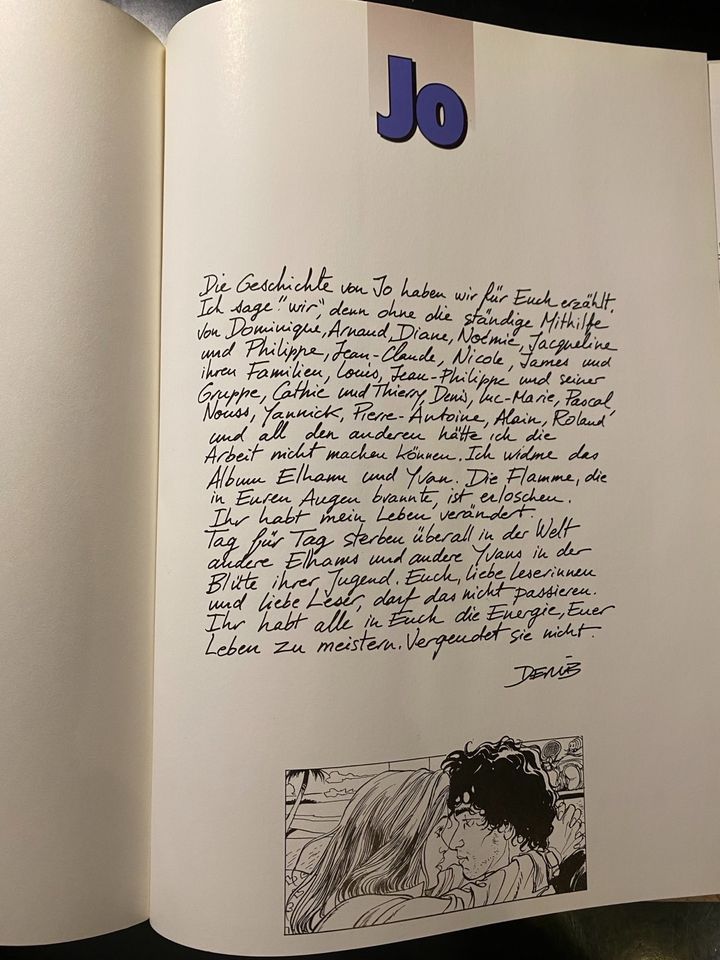 Jo
Die Geschichte von Jo haben wir für Euch erzählt.
Ich sage "wir", denn ohne die ständige Mithilfe
von Dominique, Arnaud, Diane, Noémie, Jacqueline
und Philippe, Jean-Claude, Nicole, James und
ihren Familien, Louis, Jean-Philippe und seiner
Gruppe, Cathie und Thierry, Denis, Luc-Marie, Pascal
Nouss, Yannick, Pierre-Antoine, Alain, Roland
und all den anderen hätte ich die
Arbeit nicht machen können. Ich widme das
Album Elham und Yvan. Die Flamme, die
in Euren Augen brannte, ist erloschen.
Ihr habt mein Leben verändert.
Tag für Tag sterben überall in der Welt
andere Elhams und andere Yvans in der
Blüte ihrer Jugend. Euch, liebe Leserinnen
und liebe Leser, darf das nicht passieren.
Ihr habt alle in Euch die Energie, Euer
Leben zu meistern. Vergeudet sie nicht.
DERIB